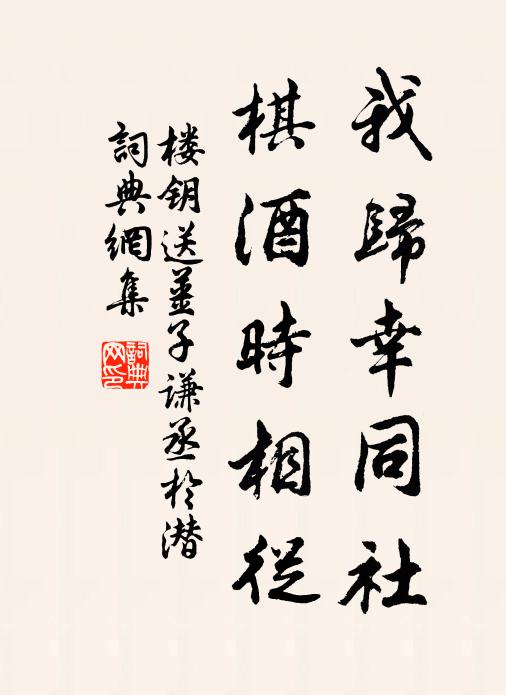 我歸幸同社
棋酒時相從
楼钥送姜子谦丞於潜
詞典網集
詞典網印